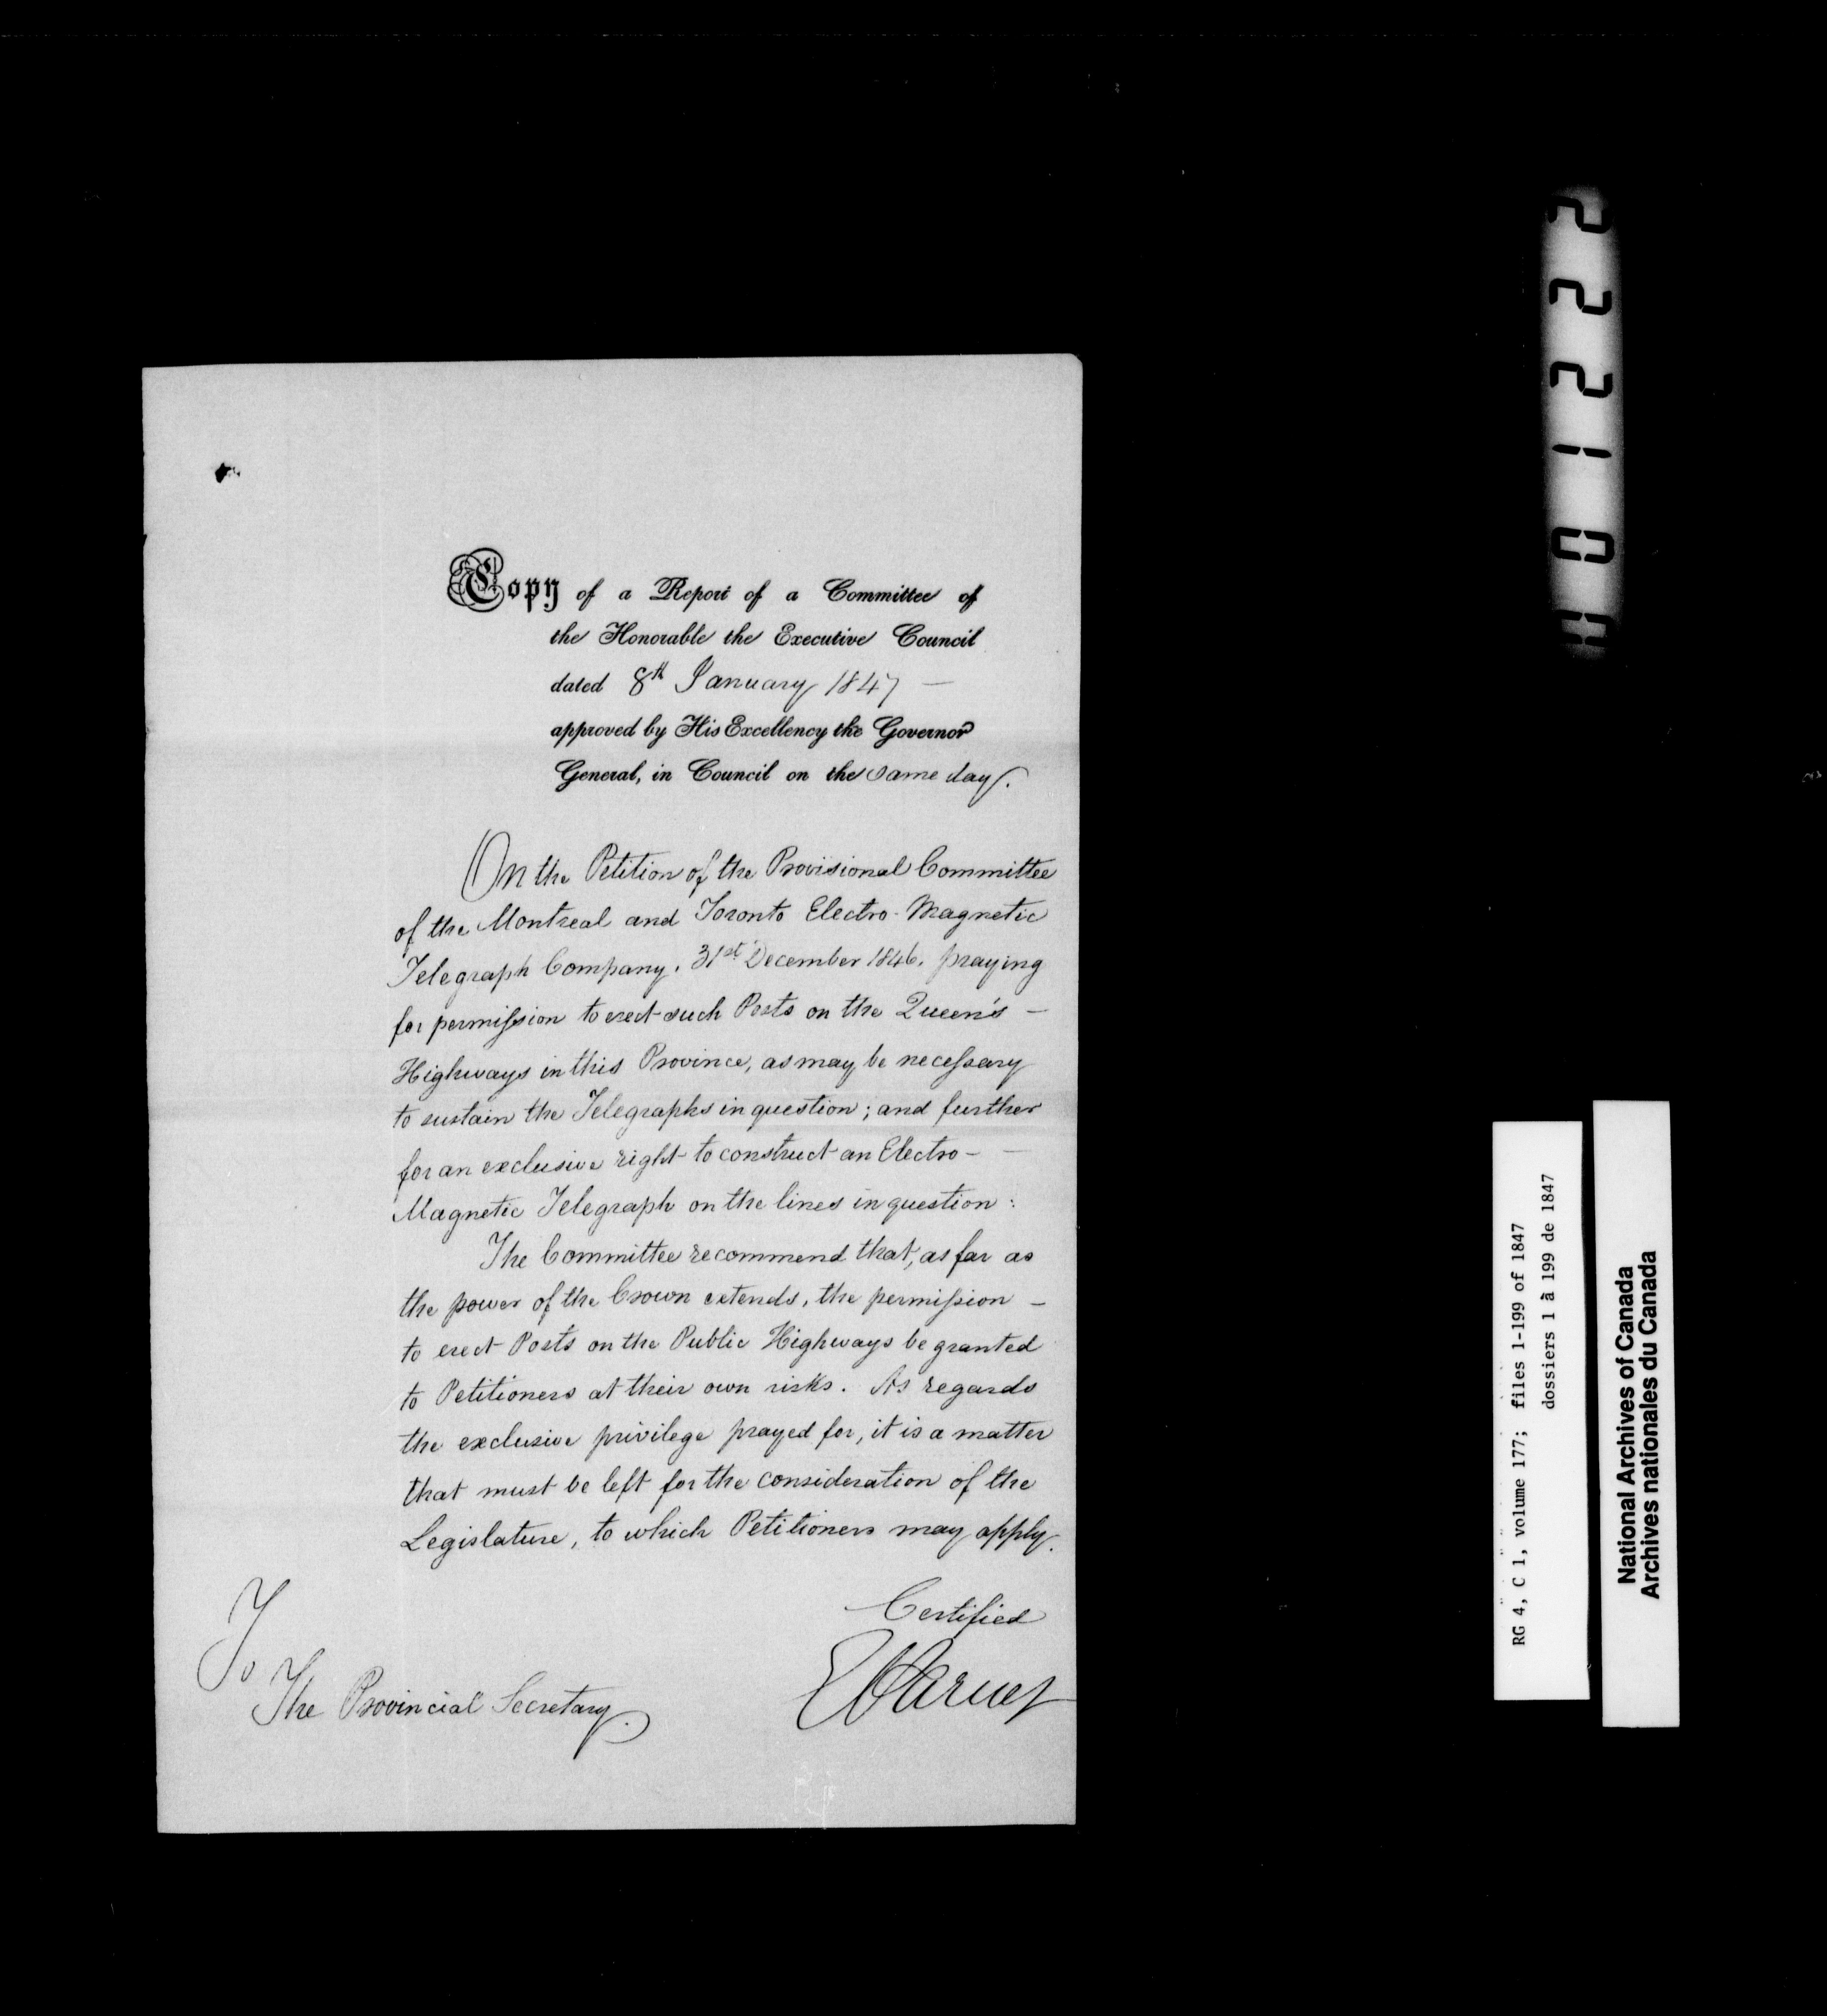 Copy of a Report of a Committee of
the Honorable the Executive Council
dated 8th January 1847 —
approved by His Excellency the Governor
General, in Council on the same day.
On the Petition of the Provisional Committee
of the Montreal and Toronto Electro-Magnetic
Telegraph Company. 31st December 1846. praying
for permission to erect such Posts on the Queen's —
Highways in this Province, as may be necessary
to sustain the Telegraphs in question; and further
for an exclusive right to construct an Electro —
Magnetic Telegraph on the lines in question:
The Committee recommend that, as far as
the power of the Crown extends, the permission —
to erect Posts on the Public Highways be granted
to Petitioners at their own risks. As regards
the exclusive privilege prayed for, it is a matter
that must be left for the consideration of the
Legislature, to which Petitioners may apply.
Certified
To
The Provincial Secretary.
RG 4, C 1, volume 177; files 1-199 of 1847
dossiers 1 à 199 de 1847
National Archives of Canada
Archives nationales du Canada